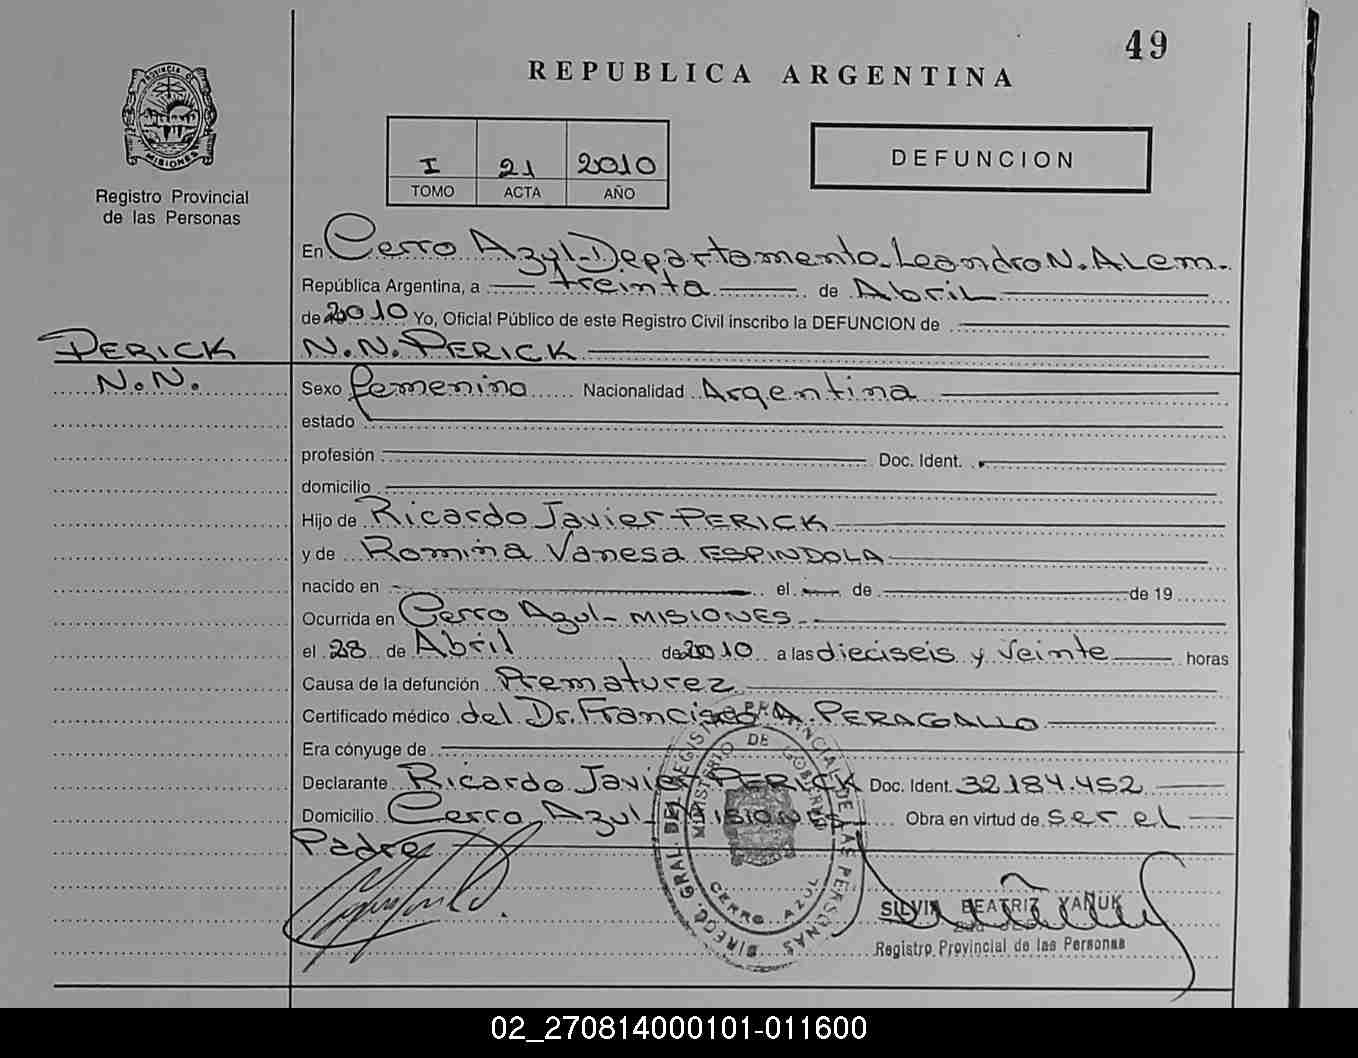 49
REPUBLICA ARGENTINA
PROVINCIA DE
MISIONES
Registro Provincial
de las Personas
I 21 2010
TOMO ACTA AÑO
DEFUNCION
En Cerro Azul-Departamento-Leandro N. ALem.
República Argentina, a treinta de Abril
de 2010 Yo, Oficial Público de este Registro Civil inscribo la DEFUNCION de
PERICK N.N. PERICK
N.N. Sexo femenino Nacionalidad Argentina
estado
profesión Doc. Ident.
domicilio
Hijo de Ricardo Javier PERICK
y de Romina Vanesa ESPINDOLA
nacido en el de de 19
Ocurrida en Cerro Azul- MISIONES
el 28 de Abril de 2010 a las dieciseis y veinte horas
Causa de la defunción Prematurez
Certificado médico del Dr. Francisco A. PERAGALLO
Era cónyuge de
Declarante Ricardo Javier PERICK Doc. Ident. 32.184.452
Domicilio Cerro Azul- MISIONES Obra en virtud de ser el
Padre
DIREC. GRAL. DEL REGISTRO PROVINCIAL DE LAS PERSONAS
MINISTERIO DE GOBIERNO
CERRO AZUL
SILVIA BEATRIZ YAÑUK
Registro Provincial de las Personas
02_270814000101-011600